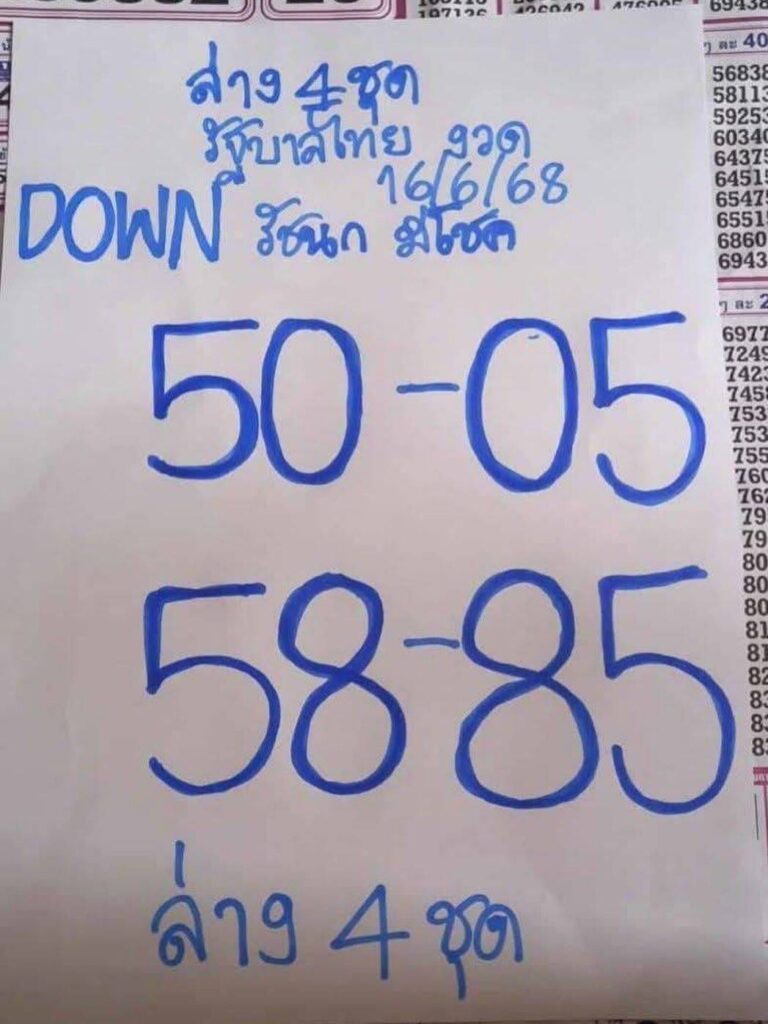 ล่าง 4 ชุด
รัฐบาลไทย งวด
16/6/68
DOWN รัชนก มีโชค
50-05
58-85
ล่าง 4 ชุด
197126
426942
476005
69438
ๆ ละ 40
56838
58113
59253
60340
64375
64515
65475
65515
6860
6943
ๆ ละ 2
6977
7249
7423
7458
753
753
755
760
762
79
79
80
80
80
81
81
82
83
83
83